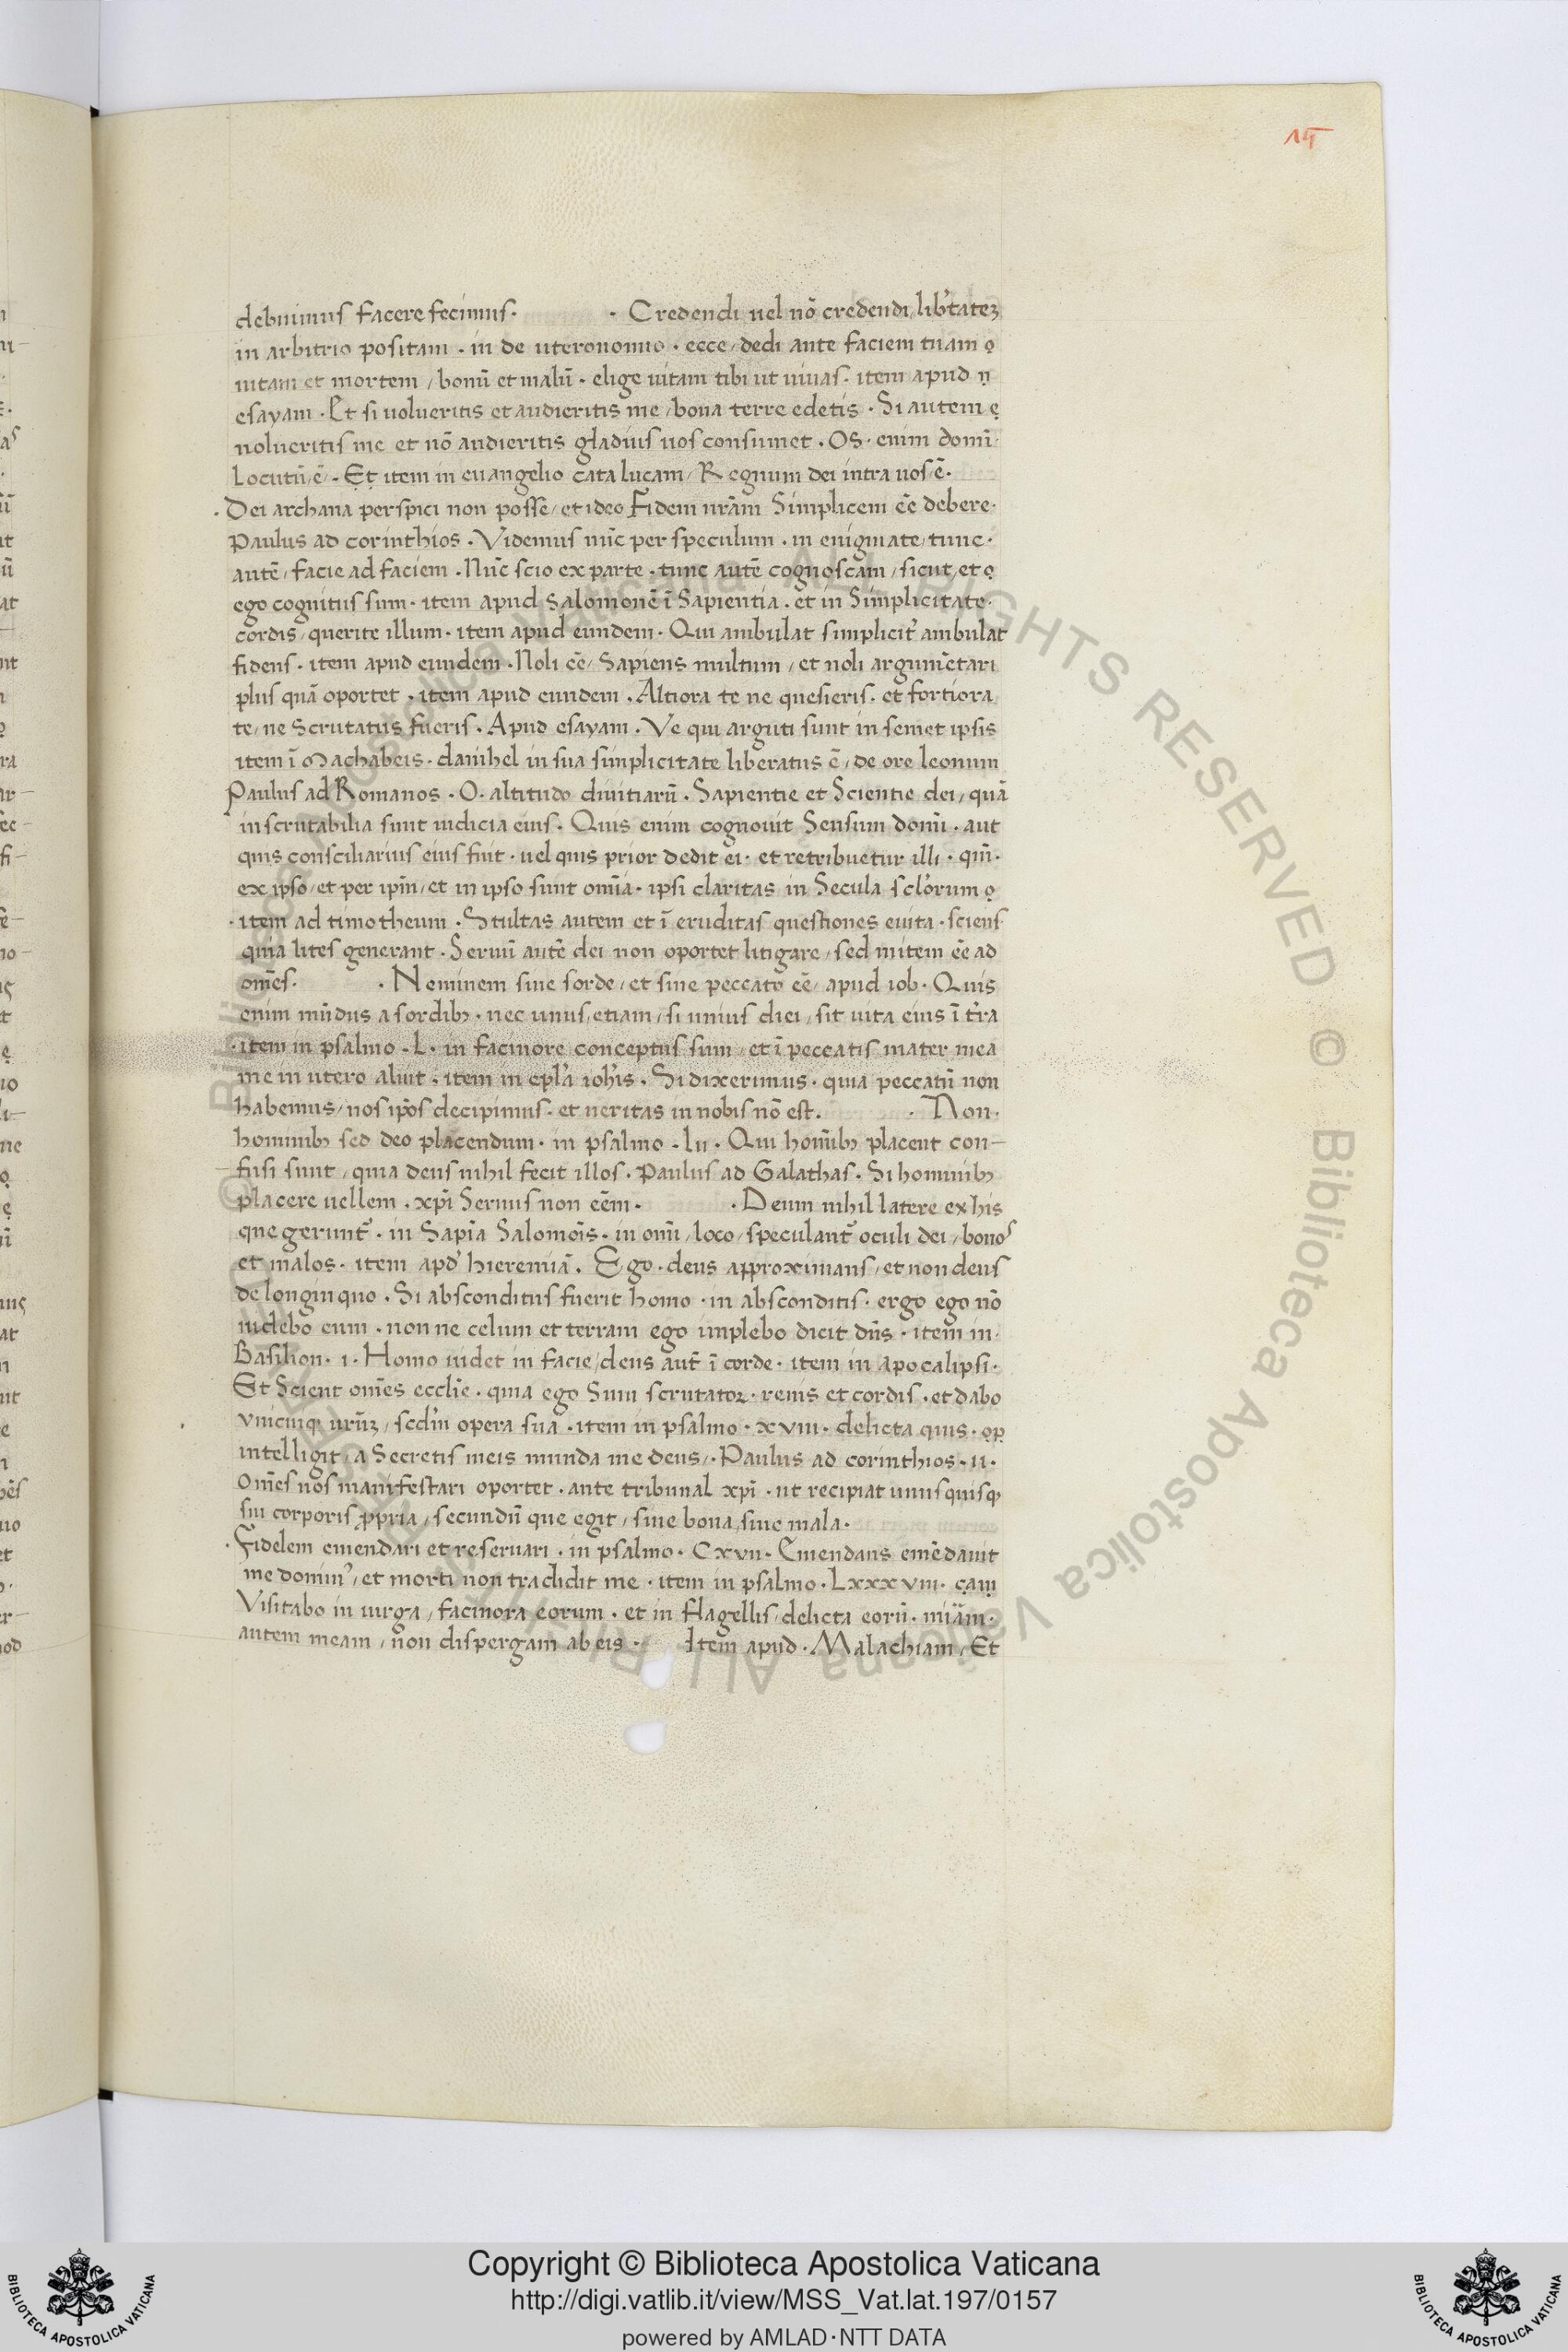 15
debuimus facere fecimus · · Credendi uel nō credendi, lib'tatez
in arbitrio positam · in de uteronomio · ecce, dedi ante faciem tuam ọ
uitam et mortem, bonū et malū · elige uitam tibi ut uiuas · item apud ṇ
esayam · Et si uolueritis et audieritis me, bona terre edetis · Si autem ẹ
nolueritis me et nō audieritis gladius uos consumet · Os · enim domī ·
Locutū, ē, · Ẹṭ item in euangelio cata lucam, Regnum dei intra uos ē ·
· Dei archana perspici non posse, et ideo Fidem nrām Simplicem eē debere ·
Paulus ad corinthios · Videmus nūc per speculum · in enigmate, tunc ·
autē, facie ad faciem · Nūc scio ex parte · tunc autē cognoscam, sicut, et ọ
ego cognitus sum · item apud Salomonē ī Sapientia · et in Simplicitate ·
cordis, querite illum · item apud eundem · Qui ambulat simplicit' ambulat
fidens · item apud eundem · Noli eē, Sapiens multum, et noli argumētari
plus quā oportet · item apud eundem · Altiora te ne quesieris · et fortiora
te, ne Scrutatus fueris · Apud esayam · Ve qui arguti sunt in semet ipsis
item ī Machabeis · danihel in sua simplicitate liberatus ē, de ore leonum
Paulus ad Romanos · O · altitudo diuitiarū · Sapientie et Scientie dei, quā
inscrutabilia sunt iudicia eius · Quis enim cognouit Sensum domī · aut
quis consciliarius eius fuit · uel quis prior dedit ei · et retribuetur illi · qm̄ ·
ex ipso, et per ipm̄, et in ipso sunt omīa · ipsi claritas in Secula scl'orum ọ
· item ad timotheum · Stultas autem et ī eruditas questiones euita · sciens
quia lites generant · Seruū autē dei non oportet litigare, sed mitem eē ad
omēs · · Neminem sine sorde, et sine peccato eē, apud iob · Quis
enim mūdus a sordibꝫ · nec unus, etiam, si unius diei, sit uita eius ī t'ra
· item in psalmo · L · in facinore conceptus sum, et ī peccatis mater mea
me in utero aluit · item in epl'a ioh'is · Si dixerimus · quia peccatū non
habemus, nos ip̄os decipimus · et ueritas in nobis nō est · · Non ·
hominibꝫ sed deo placendum · in psalmo · lii · Qui homībꝫ placent con-
fusi sunt, quia deus nihil fecit illos · Paulus ad Galathas · Si hominibꝫ
placere uellem · xpī Seruus non eēm · · Deum nihil latere ex his
que gerunt' · in Sapīa Salomōis · in omī, loco, speculant' oculi dei, bonos
et malos · item apd' hieremiā · Ego · deus approximans, et non deus
de longinquo · Si absconditus fuerit homo · in absconditis · ergo ego nō
uidebo eum · non ne celum et terram ego implebo dicit dn̄s · item in ·
Basilion · i · Homo uidet in facie, deus aut̄ ī corde · item in apocalipsi ·
Et Scient omēs ecclīe · quia ego Sum scrutatoꝝ · renis et cordis · et dabo
vnicuiqꝫ urūꝫ, scd'm opera sua · item in psalmo · xviii · delicta quis · ọp̣
intelligit, a Secretis meis munda me deus, · Paulus ad corinthios · ii ·
Omēs nos manifestari oportet · ante tribunal xpī · ut recipiat unusquisqꝫ
sui corporis ꝓpria, secundū que egit, siue bona, siue mala ·
· Fidelem emendari et reseruari · in psalmo · Cxvii · Emendans emēdauit
me domin', et morti non tradidit me · item in psalmo · Lxxxviii · c̣aṃ
Visitabo in uirga, facinora eorum · et in flagellis, delicta eorū · mīam ·
autem meam, non dispergam ab eis · Item apud · Malachiam, Et
Copyright © Biblioteca Apostolica Vaticana
http://digi.vatlib.it/view/MSS_Vat.lat.197/0157
powered by AMLAD·NTT DATA